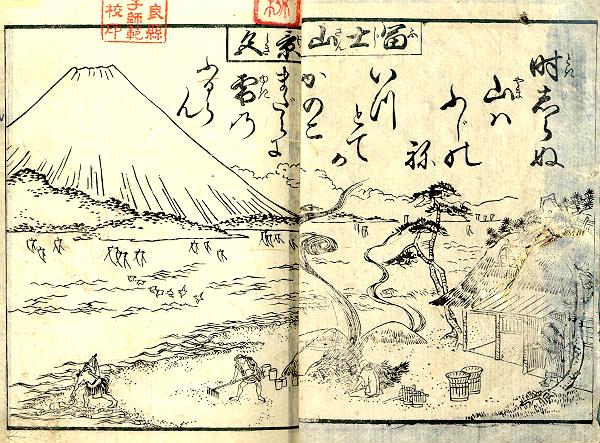 冨士山
時志らぬ
山ハ
ふじの
祢
いつ
とてか
かのこ
まだらに
雪乃
ふるらん
良縣
子師範
校印